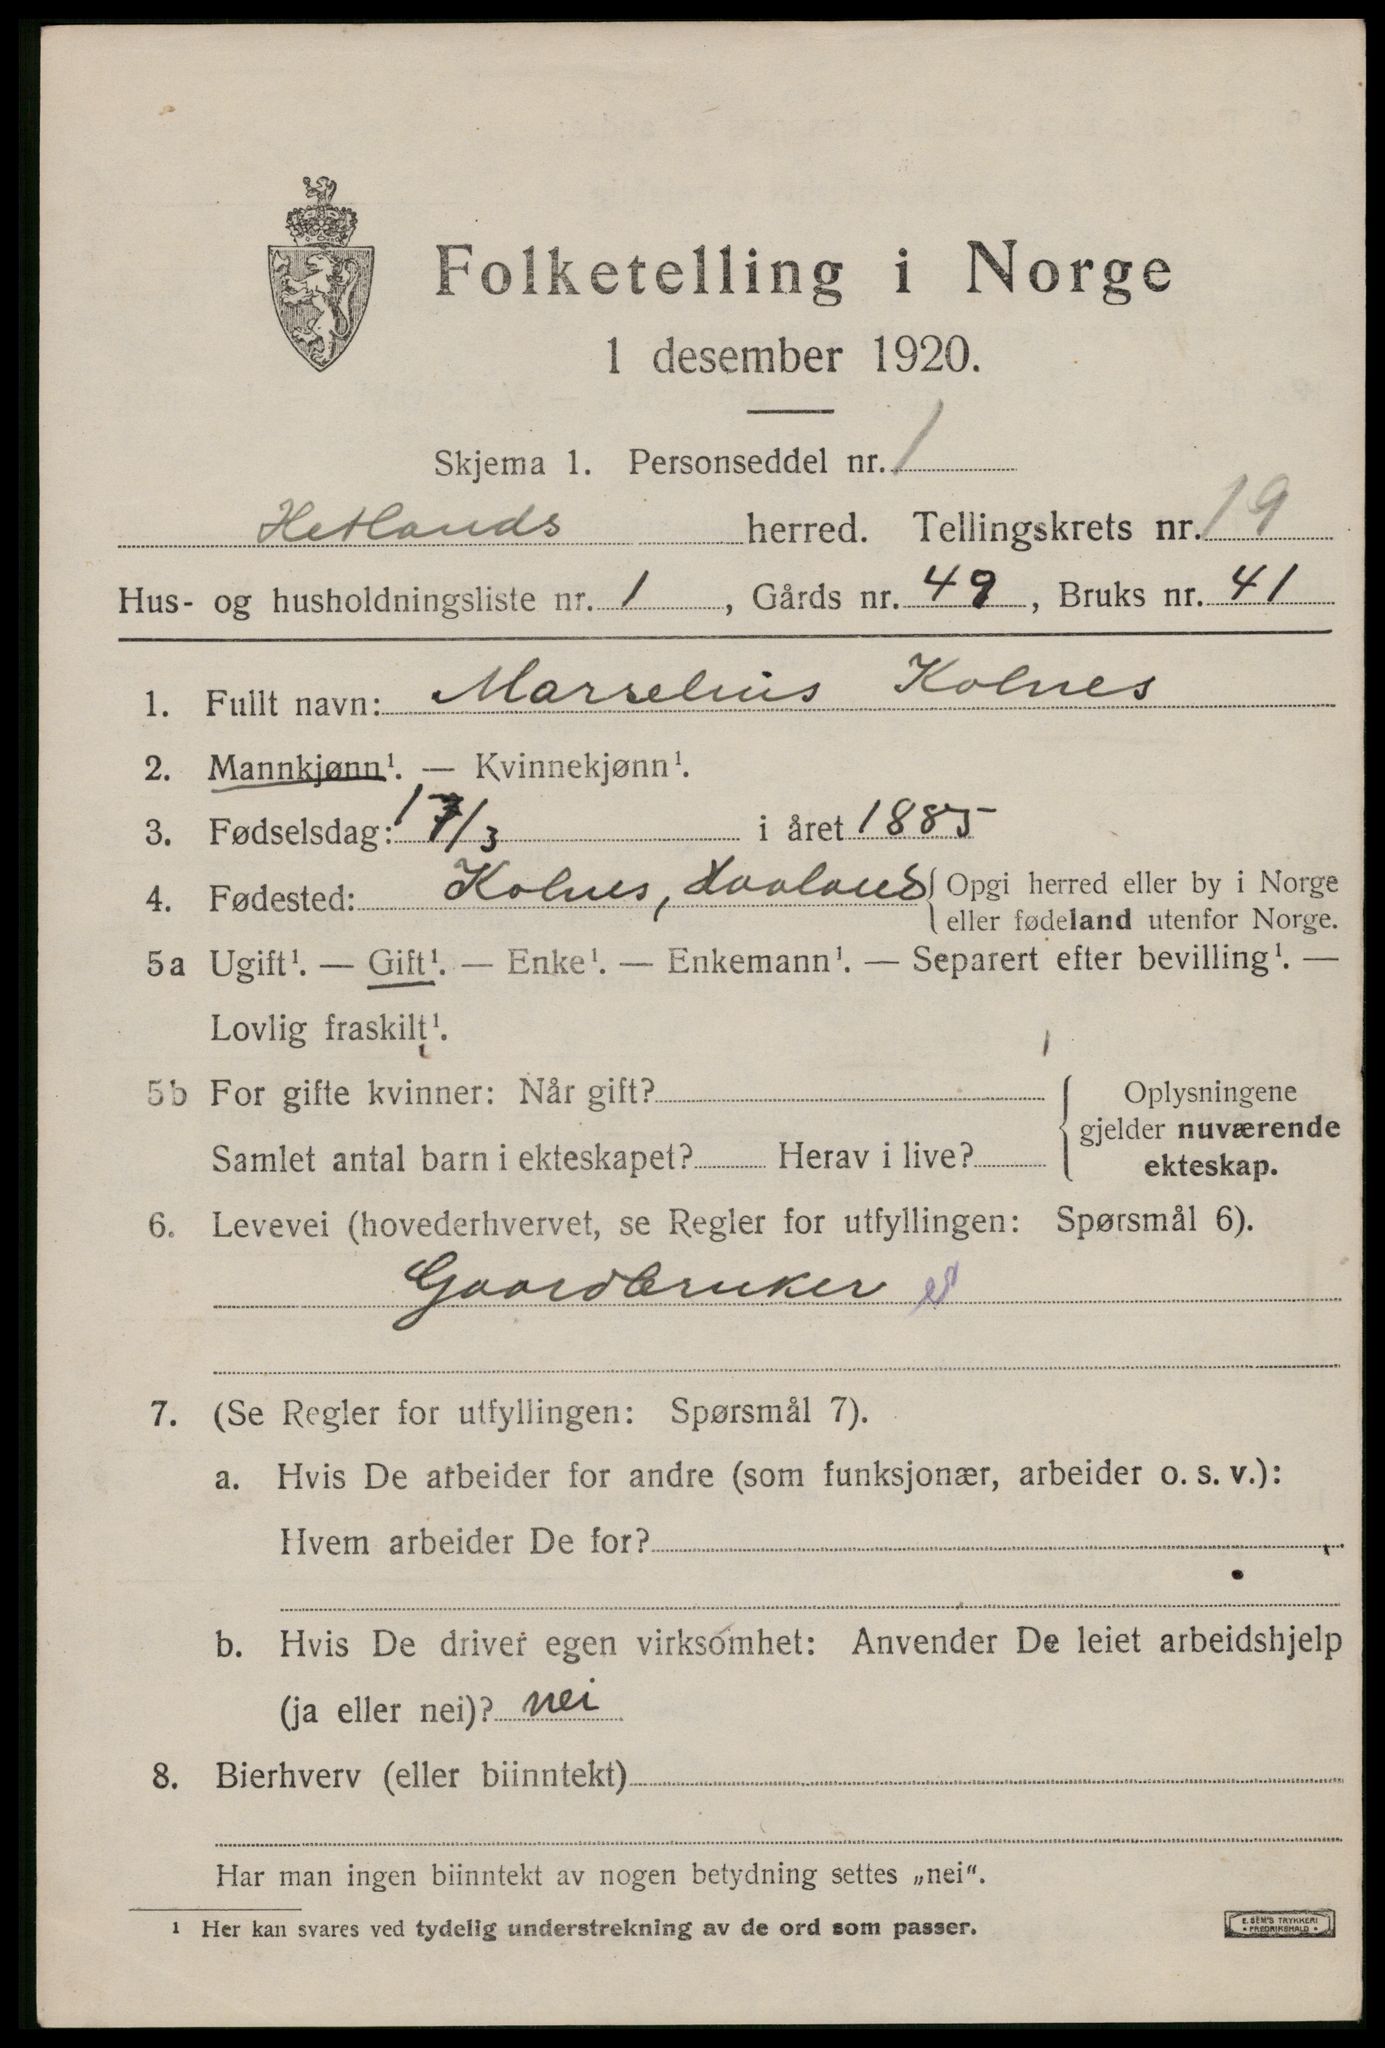 Folketelling i Norge
1 desember 1920.
Skjema 1. Personseddel nr. 1
Hetlands herred. Tellingskrets nr. 19
Hus- og husholdningsliste nr. 1, Gårds nr. 49, Bruks nr. 41
1. Fullt navn: Marselius Kolnes
2. Mannkjønn¹. — Kvinnekjønn¹.
3. Fødselsdag: 17/3 i året 1885
4. Fødested: Kolnes, Haaland { Opgi herred eller by i Norge
eller fødeland utenfor Norge.
5a Ugift¹. — Gift¹. — Enke¹. — Enkemann¹. — Separert efter bevilling¹. —
Lovlig fraskilt¹.
5b For gifte kvinner: Når gift? { Oplysningene
gjelder nuværende
Samlet antal barn i ekteskapet? Herav i live? ekteskap.
6. Levevei (hovederhvervet, se Regler for utfyllingen: Spørsmål 6).
Gaardbruker
7. (Se Regler for utfyllingen: Spørsmål 7).
a. Hvis De arbeider for andre (som funksjonær, arbeider o. s. v.):
Hvem arbeider De for?
b. Hvis De driver egen virksomhet: Anvender De leiet arbeidshjelp
(ja eller nei)? nei
8. Bierhverv (eller biinntekt)
Har man ingen biinntekt av nogen betydning settes „nei“.
¹ Her kan svares ved tydelig understrekning av de ord som passer.
E. SEM'S TRYKKERI
• FREDRIKSHALD •